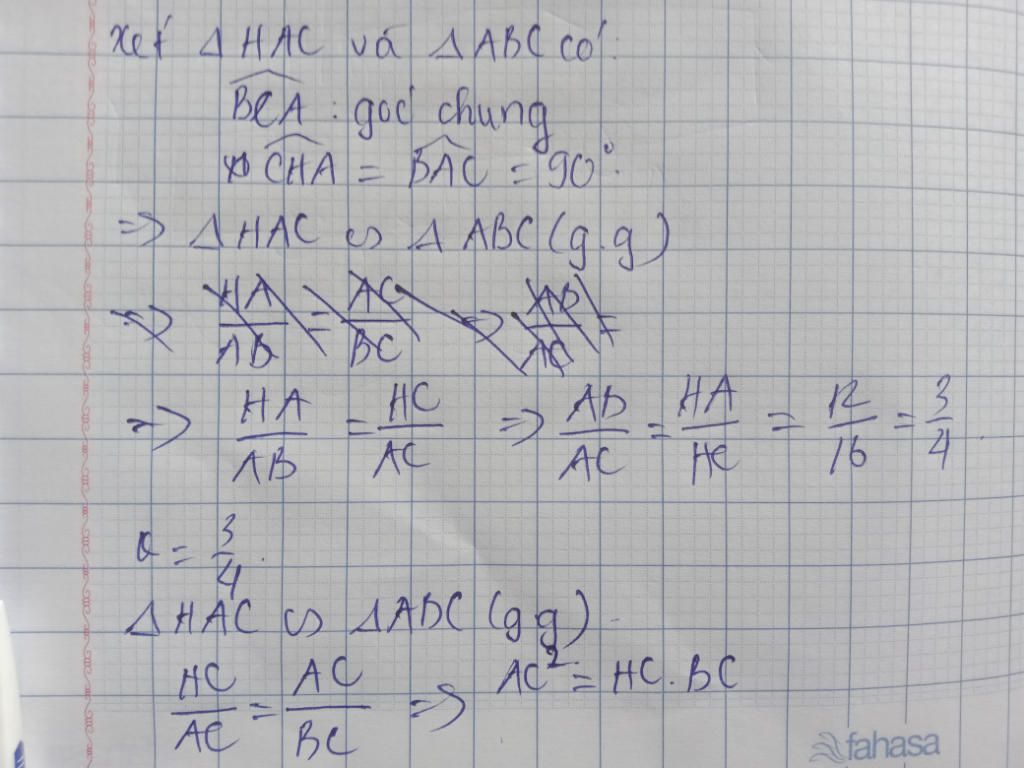 Xét Δ HAC và Δ ABC có:
BCA : góc chung
CHA = BAC = 90°.
=> Δ HAC ∽ Δ ABC (g.g)
=> HA/AB = AC/BC => AB/AC =
=> HA/AB = HC/AC => AB/AC = HA/HC = 12/16 = 3/4.
= 3/4.
Δ HAC ∽ Δ ABC (g g)
HC/AC = AC/BC => AC² = HC . BC
fahasa